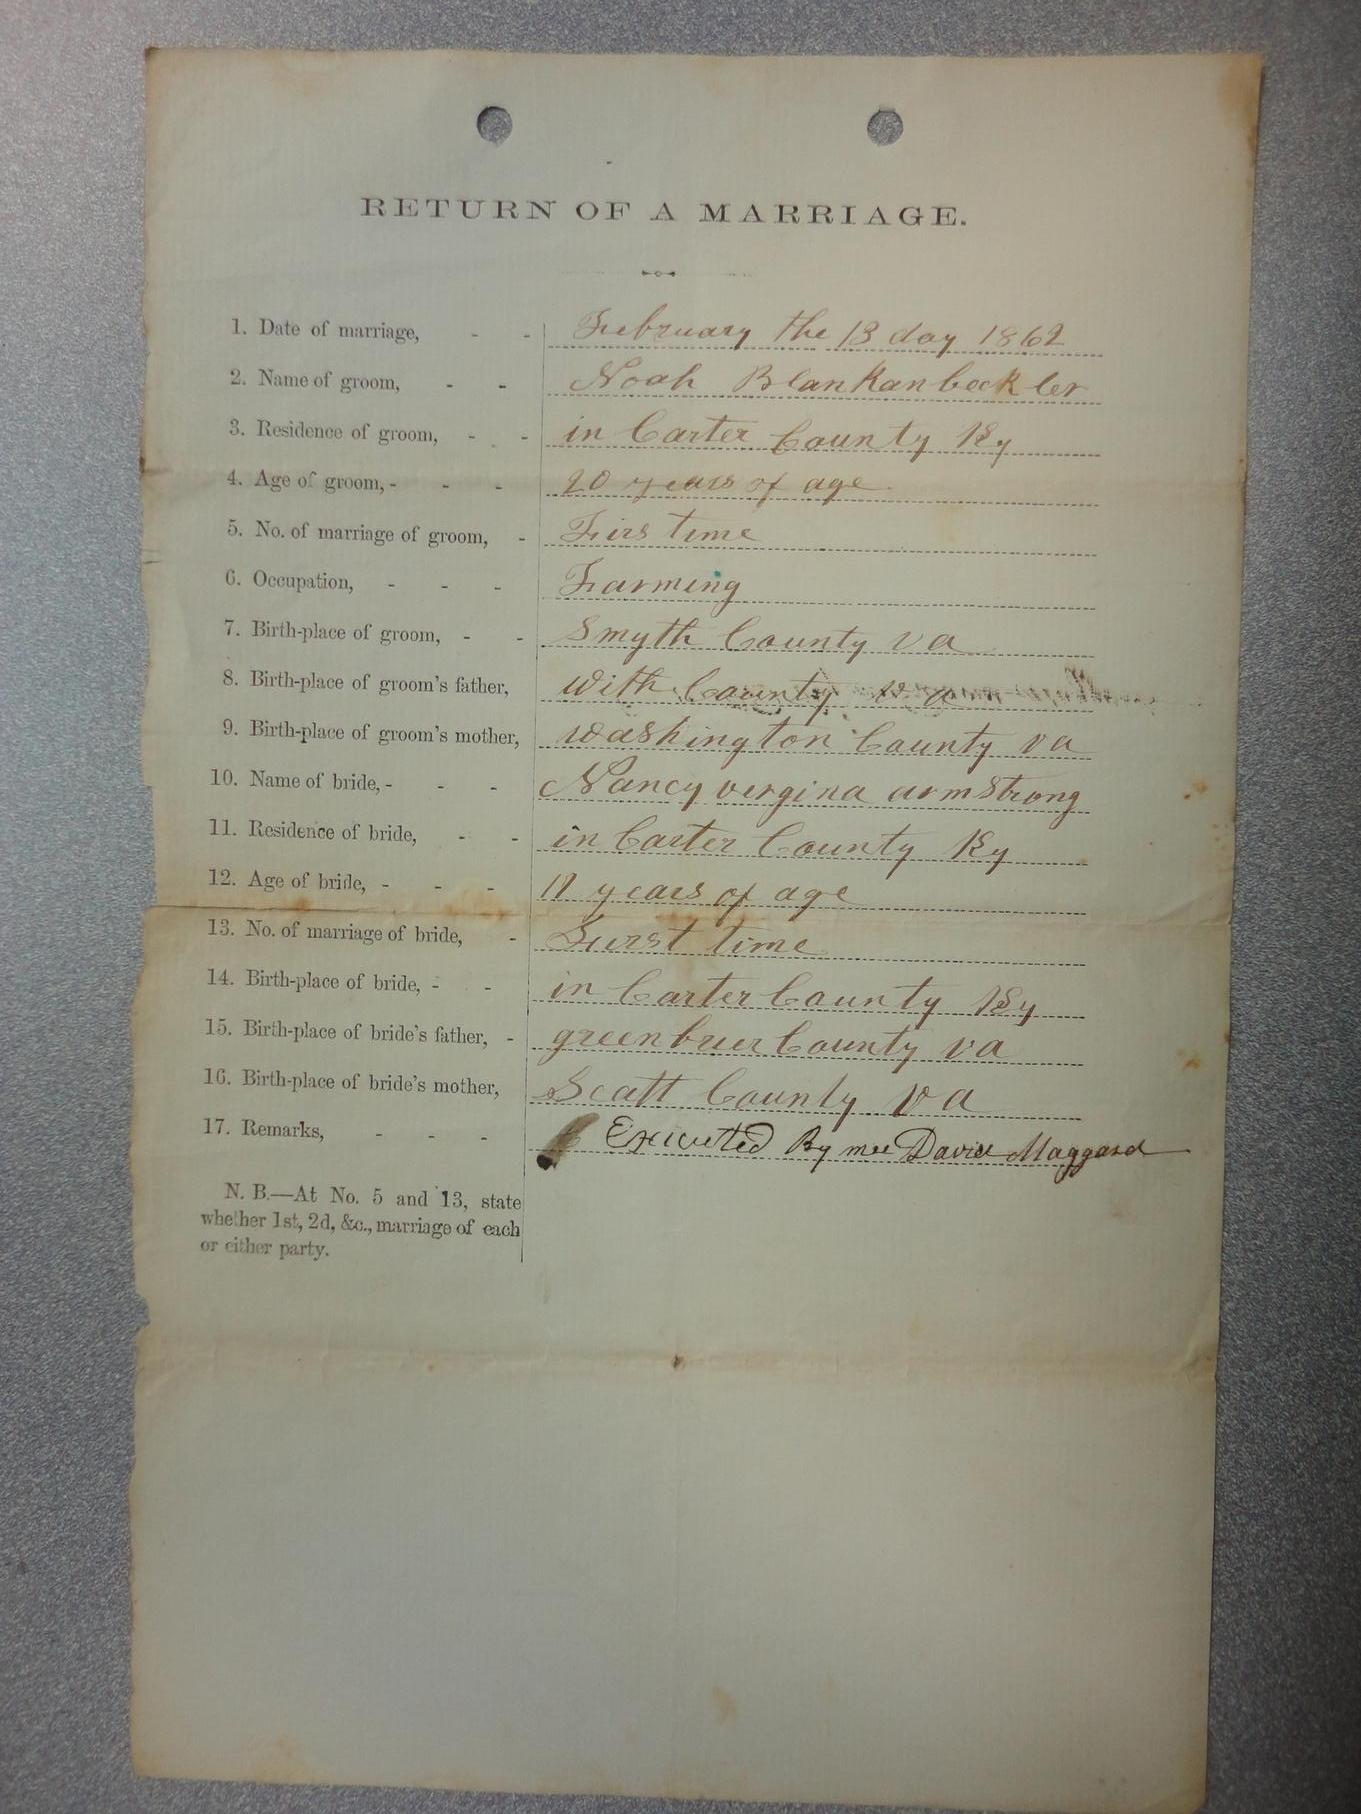 RETURN OF A MARRIAGE.
1. Date of marriage, - - February the 13 day 1862
2. Name of groom, - - Noah Blankanbeckler
3. Residence of groom, - - in Carter County Ky
4. Age of groom, - - - 20 years of age
5. No. of marriage of groom, - Firs time
6. Occupation, - - - Farming
7. Birth-place of groom, - - Smyth County va
8. Birth-place of groom's father, With County va
9. Birth-place of groom's mother, washington County va
10. Name of bride, - - - Nancy vergina armstrong
11. Residence of bride, - - in Carter County Ky
12. Age of bride, - - - years of age
13. No. of marriage of bride, - Furst time
14. Birth-place of bride, - - in Carter County Ky
15. Birth-place of bride's father, - greenbrier County va
16. Birth-place of bride's mother, Scatt County va
17. Remarks, - - - Executed By mee David Maggard
N. B.—At No. 5 and 13, state
whether 1st, 2d, &c., marriage of each
or either party.